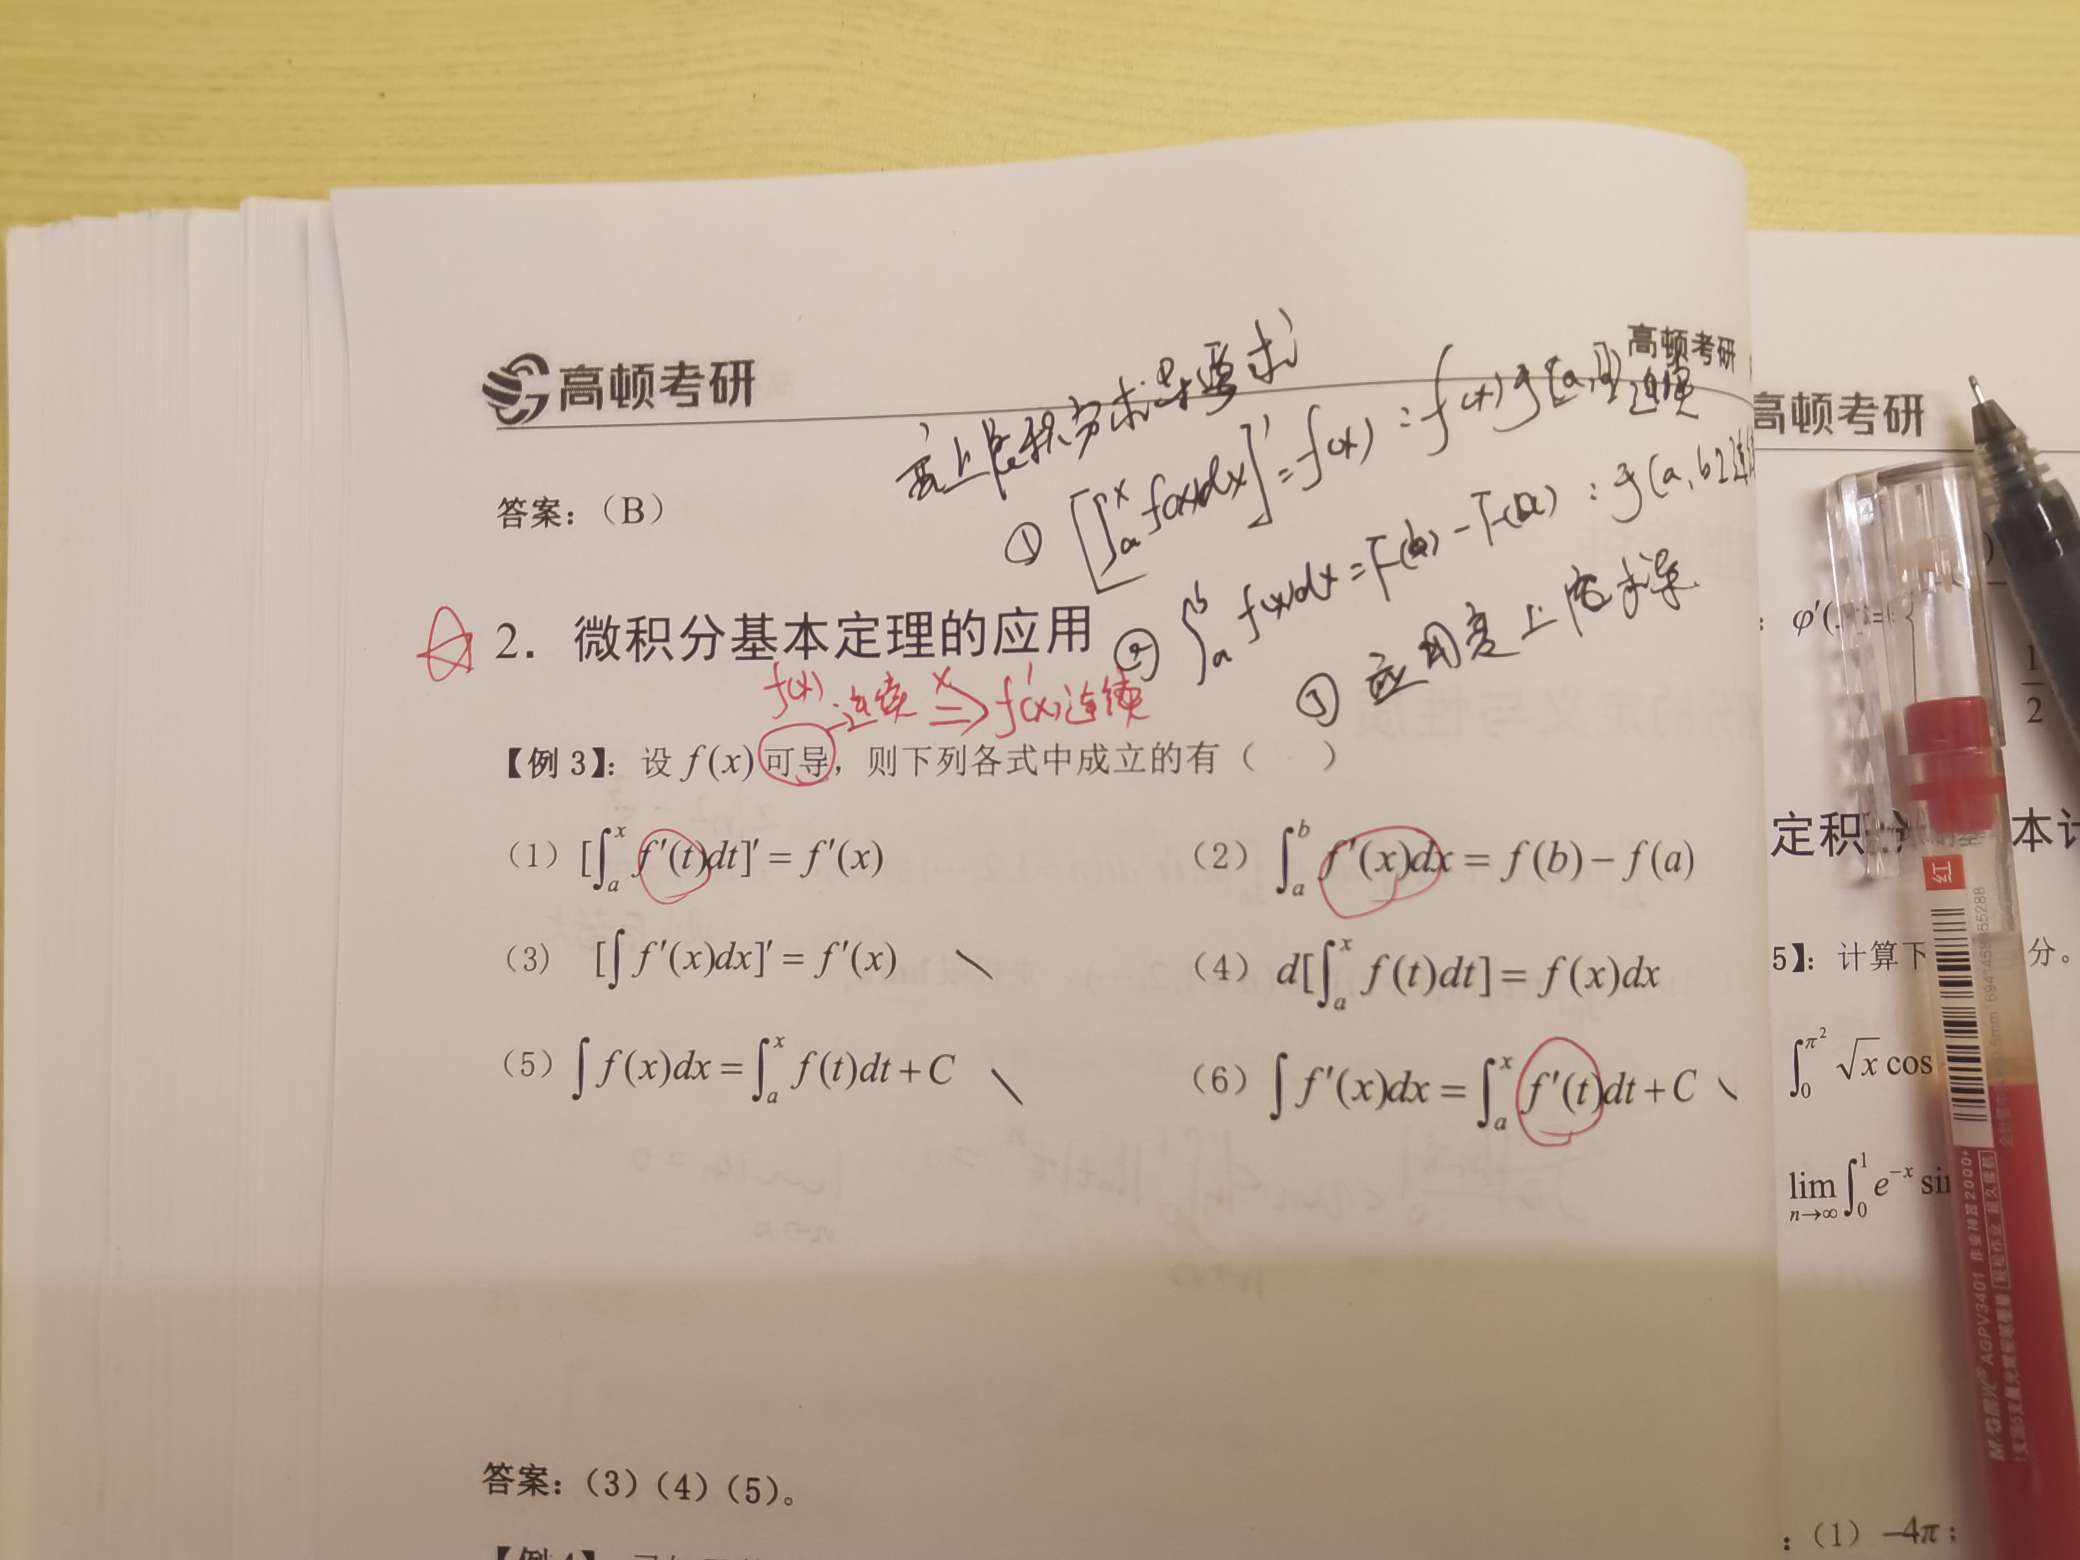 高顿考研
高顿考研
变上限积分求导要求
答案：（B）
① [∫ₐˣ f(x)dx]' = f(x) : f(x)于[a,b]连续
② ∫ₐᵇ f(x)dx = F(b) - F(a) : 于[a,b]连
③ 应用变上限求导
2. 微积分基本定理的应用
f(x)连续 ⇒ f'(x)连续
×
【例 3】：设 f(x) 可导，则下列各式中成立的有（ ）
（1）[∫ₐˣ f′(t)dt]′ = f′(x)
（2）∫ₐᵇ f′(x)dx = f(b) − f(a)
（3） [∫ f′(x)dx]′ = f′(x)
（4）d[∫ₐˣ f(t)dt] = f(x)dx
（5）∫ f(x)dx = ∫ₐˣ f(t)dt + C
（6）∫ f′(x)dx = ∫ₐˣ f′(t)dt + C
答案：（3）（4）（5）。
高顿考研
φ′(
1/2
定积分
本计
5】：计算下
分。
∫₀^π² √x cos
lim n→∞ ∫₀¹ e⁻ˣ sin
：（1）−4π；
红
M&G 晨光 AGPV3401